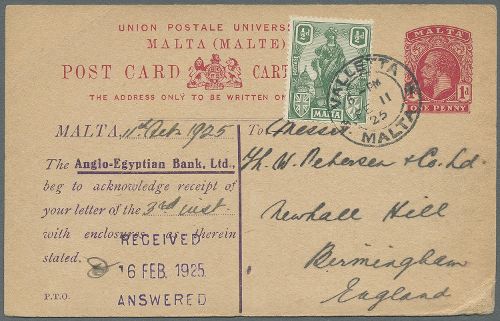 UNION POSTALE UNIVERS
MALTA (MALTE)
POST CARD CART
THE ADDRESS ONLY TO BE WRITTEN ON
½d ½d
VALLETTA
PM
11
25
MALTA
MALTA
1d
ONE PENNY
MALTA, 1925
The Anglo-Egyptian Bank, Ltd.,
beg to acknowledge receipt of
your letter of the 3rd inst.
with enclosures as therein
stated.
P.T.O.
RECEIVED
16 FEB. 1925
ANSWERED
To Messrs
Th. W. Petersen & Co. Ld.
Newhall Hill
Birmingham
England